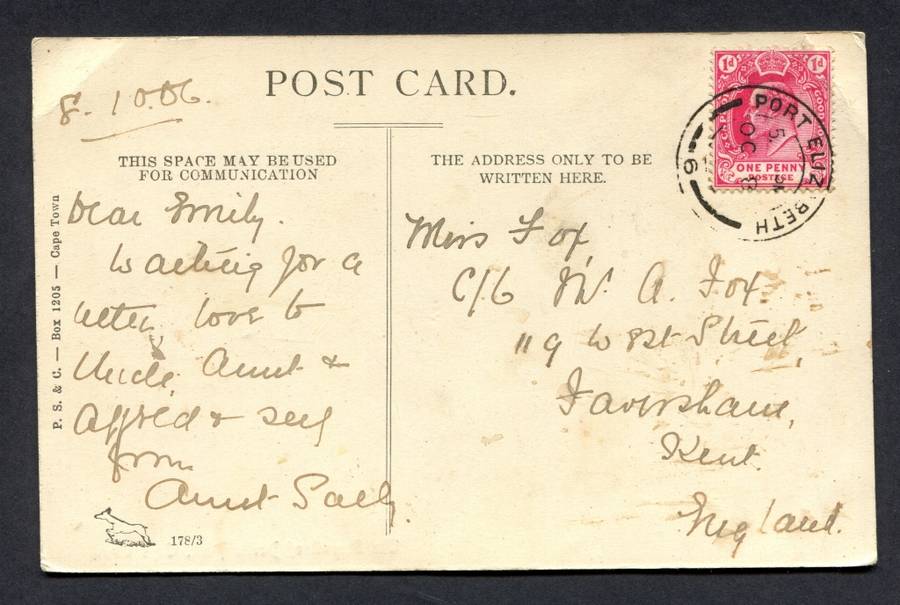 POST CARD.
8.10.06.
THIS SPACE MAY BE USED
FOR COMMUNICATION
Dear Emily.
Waiting for a
letter love to
Uncle, Aunt &
Alfred & self
from
Aunt Sally.
P. S. & C. — Box 1205 — Cape Town
178/3
THE ADDRESS ONLY TO BE
WRITTEN HERE.
Miss Fox
C/o Mr. A. Fox.
119 West Street,
Faversham,
Kent.
England.
1d 1d
ONE PENNY
POSTAGE
PORT ELIZABETH
OC 8